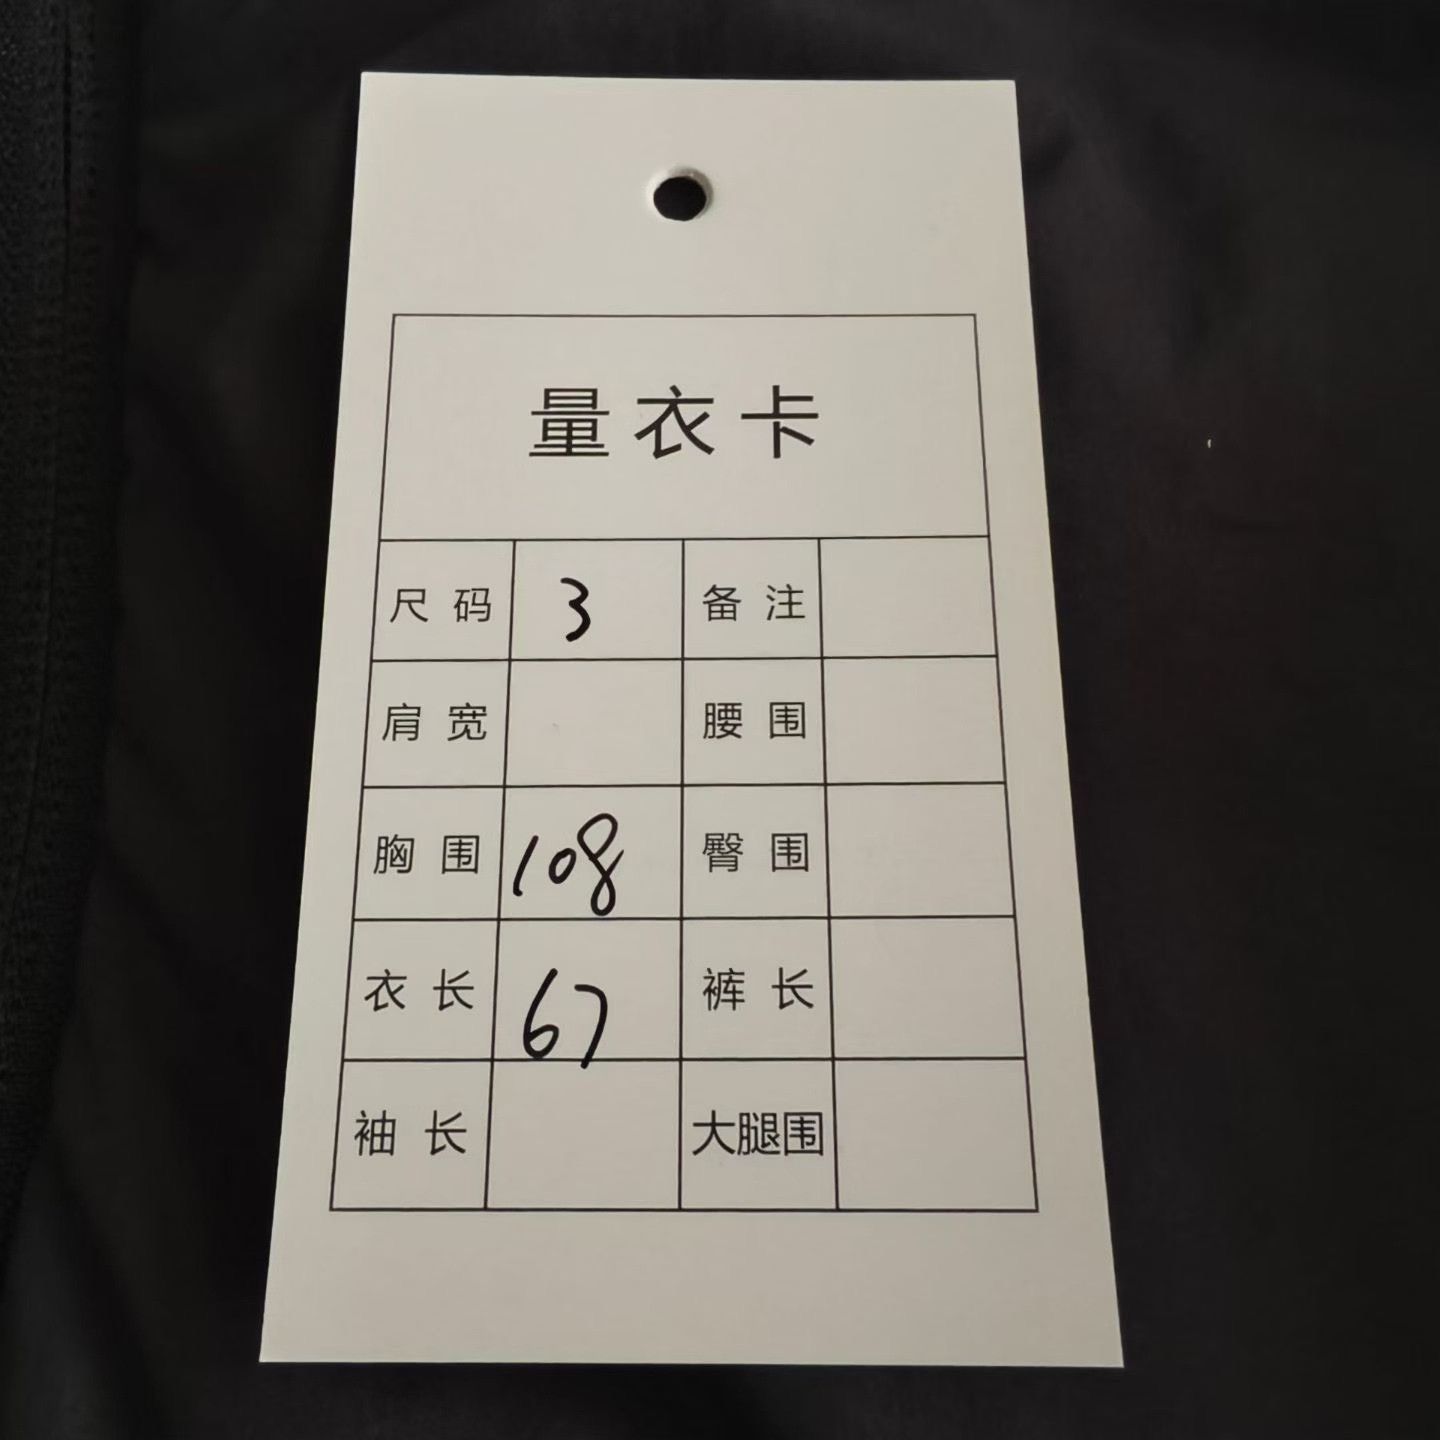 量衣卡
尺码 3 备注
肩宽 腰围
胸围 108 臀围
衣长 67 裤长
袖长 大腿围